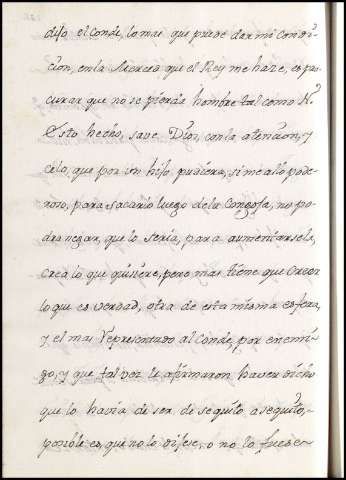 dijo el Conde, lo mas que puede dar mi Condi-
cion, en la Merced que el Rey me haze, es pro
curar que no se pierda hombre tal como N.
Esto hecho, save Dios, con la atencion, y
celo, que por un hijo pudiera, si me allo pode-
roso, para sacarlo luego de la Congoja, no po-
dra negar, que lo seria, para aumentarsela,
crea lo que quisiere, pero mas tiene que creer
lo que es verdad, otra de esta misma esfera,
y el mas Representado al Conde, por enemi-
go, y que tal vez le afirmaron haver dicho
que lo havia de ser de sequito a sequito,
posible es, que no lo dijese, o no lo fuese